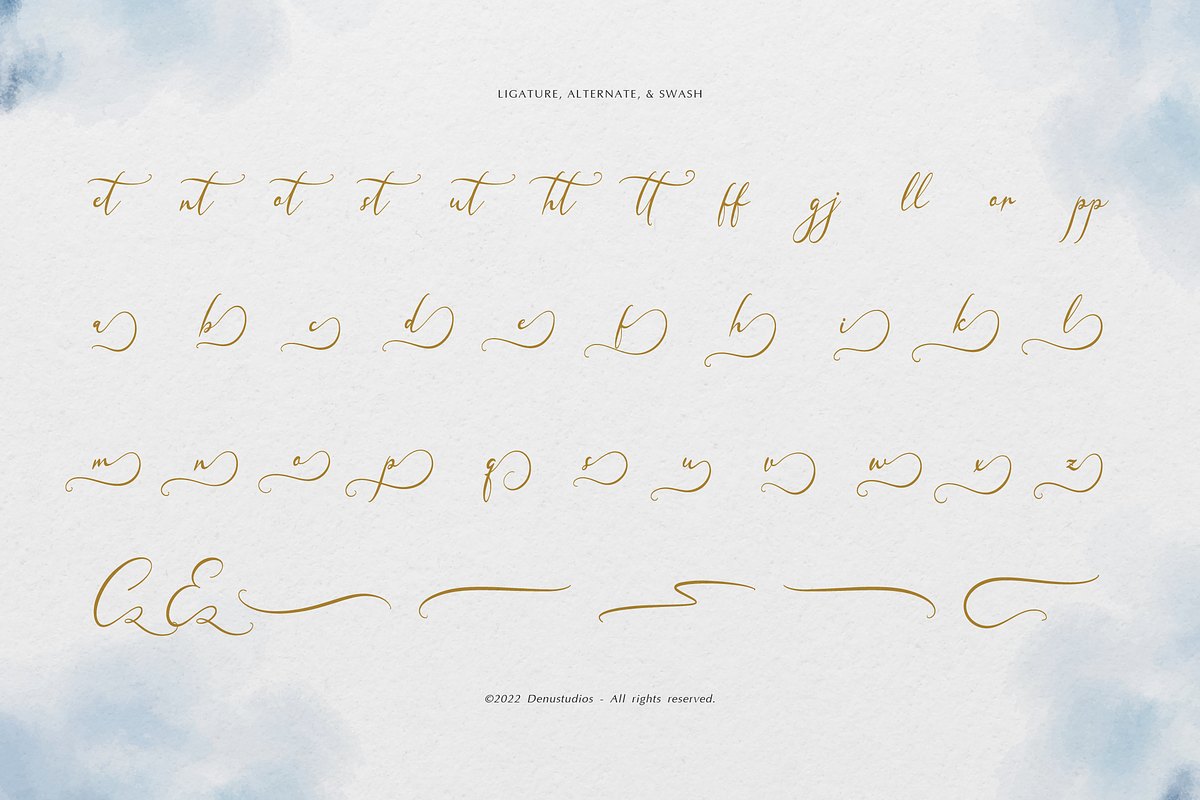 LIGATURE, ALTERNATE, & SWASH
et nt ot st ut ht tt ff gj ll or pp
a b c d e f h i k l
m n o p q s u v w x z
C E
©2022 Denustudios - All rights reserved.